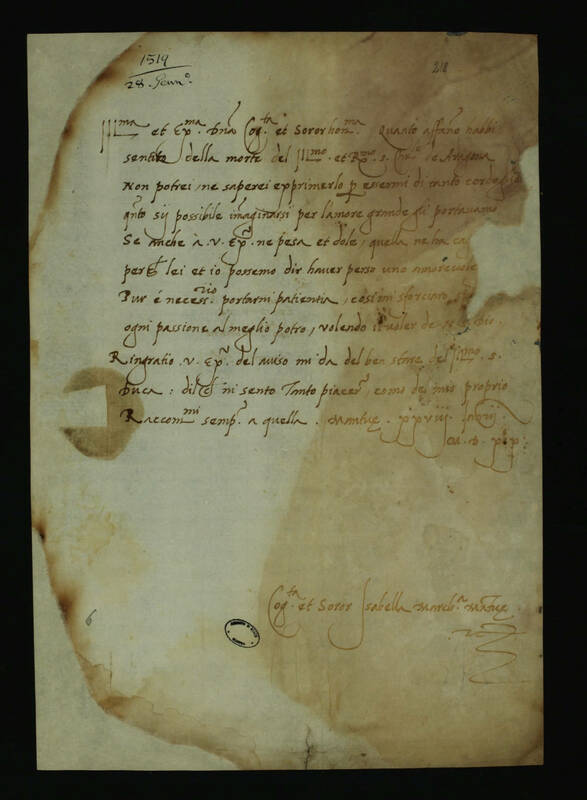 1519
28. Jenn.o
218
Ill.ma et Ex.ma Dna Cog.ta et Soror hon.ma Quanto affano habbi
sentito della morte del Ill.mo et R.mo s. Car.le de Aragona
Non potrei, ne saperei exprimerlo p essermi di tanto cordoglio
qnto sij possibile imaginarsi per l'amore grande gli portavamo
Se anche à .v. Ex. ne pesa et dole, quella ne ha
lei et io possemo dir haver perso uno amorevole
Pur é necess.rio portarni patientia, cosi mi sforciaro
ogni passione al meglio potro, volendo il voler de
Ringratio .v. Ex. del aviso mi da del ben stare del Ill.mo s.
Duca: mi sento Tanto piacer, como del mio proprio
Raccom.mi semp. a quella. Mantue.
M. D.
Cog.ta et Soror Isabella March.a Mantue
6